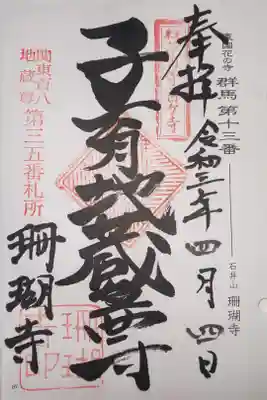 東国花の寺
群馬 第十三番
石井山 珊瑚寺
奉拝 令和三年四月四日
子育地蔵尊
関東百八
地蔵尊 第三五番札所
珊瑚寺